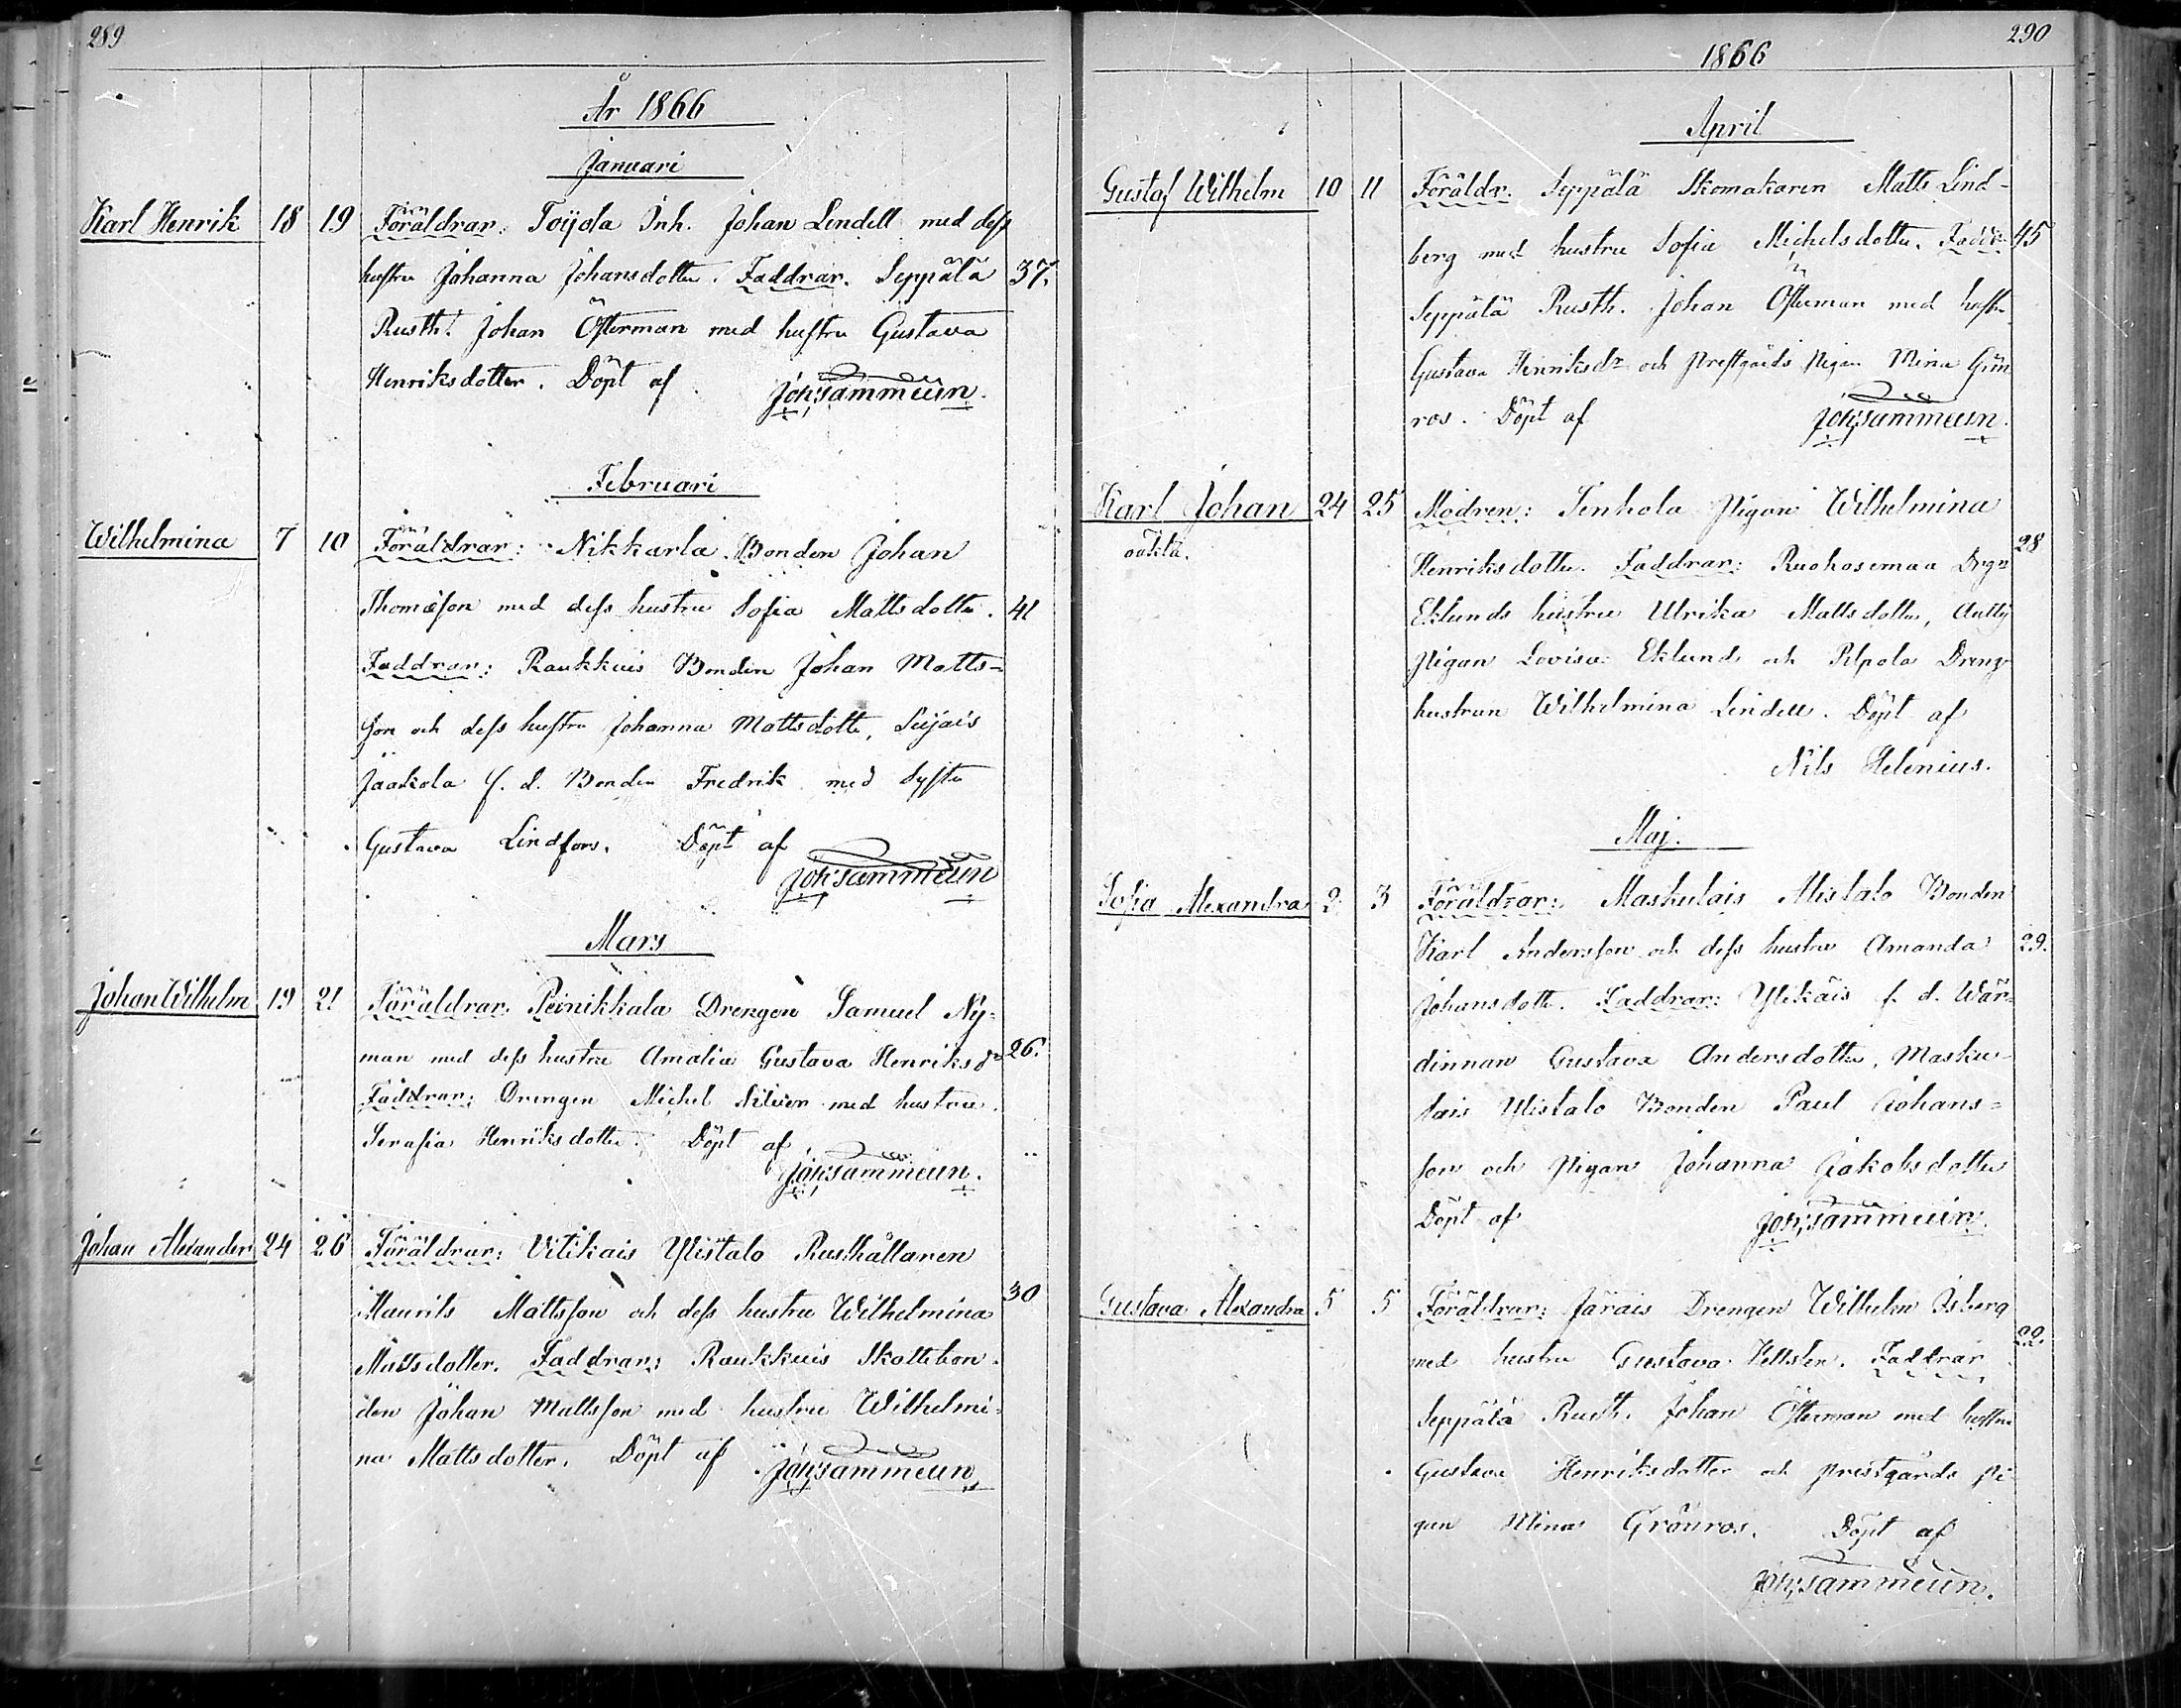 289
År 1866
Januari
Karl Henrik 18 19 Föräldrar: Toijola Inh. Johan Lindell med dess
hustru Johanna Johansdotter. Faddrar. Seppälä 37.
Rusth. Johan Österman med hustru Gustava
Henriksdotter. Döpt af Joh: Sammeun.
Februari
Wilhelmina 7 10 Föräldrar: Nikkarla Bonden Johan
Thomasson med dess hustru Sofia Mattsdotter. 41
Faddrar: Raukkais Bonden Johan Matts-
son och dess hustru Johanna Mattsdotter,
Jaakola f. d. Bonden Fredrik med Syster
Gustava Lindfors. Döpt af
Joh: Sammeun
Mars
Johan Wilhelm 19 21 Föräldrar: Peinikkala Drengen Samuel Ny-
man med dess hustru Amalia Gustava Henriksdr 26.
Faddrar: Drengen Michel med hustru
Serafia Henriksdotter. Döpt af
Joh: Sammeun.
Johan Alexander 24 26 Föräldrar: Vitikais Ylistalo Rusthållaren
Maurits Mattsson och dess hustru Wilhelmina 30
Mattsdotter. Faddrar: Raukkais Skattebon-
den Johan Mattsson med hustru Wilhelmi-
na Mattsdotter. Döpt af Joh: Sammeun
290
1866
April
Gustaf Wilhelm 10 11 Föräldr. Seppälä Skomakaren Matts Lind-
berg med hustru Sofia Michelsdotter. Faddr. 45
Seppälä Rusth. Johan Österman med hustru
Gustava Henriksdr och Prestgårds Pigan Mina Grön
ros. Döpt af Joh: Sammeun.
Karl Johan 24 25 Modren: Tenhola Pigan Wilhelmina
oäkta. 28
Henriksdotter. Faddrar: Ruohosemaa Drgn
Eklunds hustru Ulrika Mattsdotter, Anttij
Pigan Lovisa Eklund och Pilpola Dreng
hustrun Wilhelmina Lindell. Döpt af
Nils Helenius.
Maj.
Sofia Alexandra 2 3 Föräldrar: Maskulais Alistalo Bonden
Karl Andersson och dess hustru Amanda 29.
Johansdotter. Faddrar: Ylikäis f. d. Wär-
dinnan Gustava Andersdotter, Masku-
lais Ylistalo Bonden Paul Johans-
son och Pigan Johanna Jakobsdotter
Döpt af Joh: Sammeun.
Gustava Alexandra 5 5 Föräldrar: Järäis Drengen Wilhelm Isberg
med hustru Gustava Hellsten. Faddrar 22.
Seppälä Rusth. Johan Österman med hustru
Gustava Henriksdotter och prestgårds pi-
gan Mina Grönros. Döpt af
Joh: Sammeun.